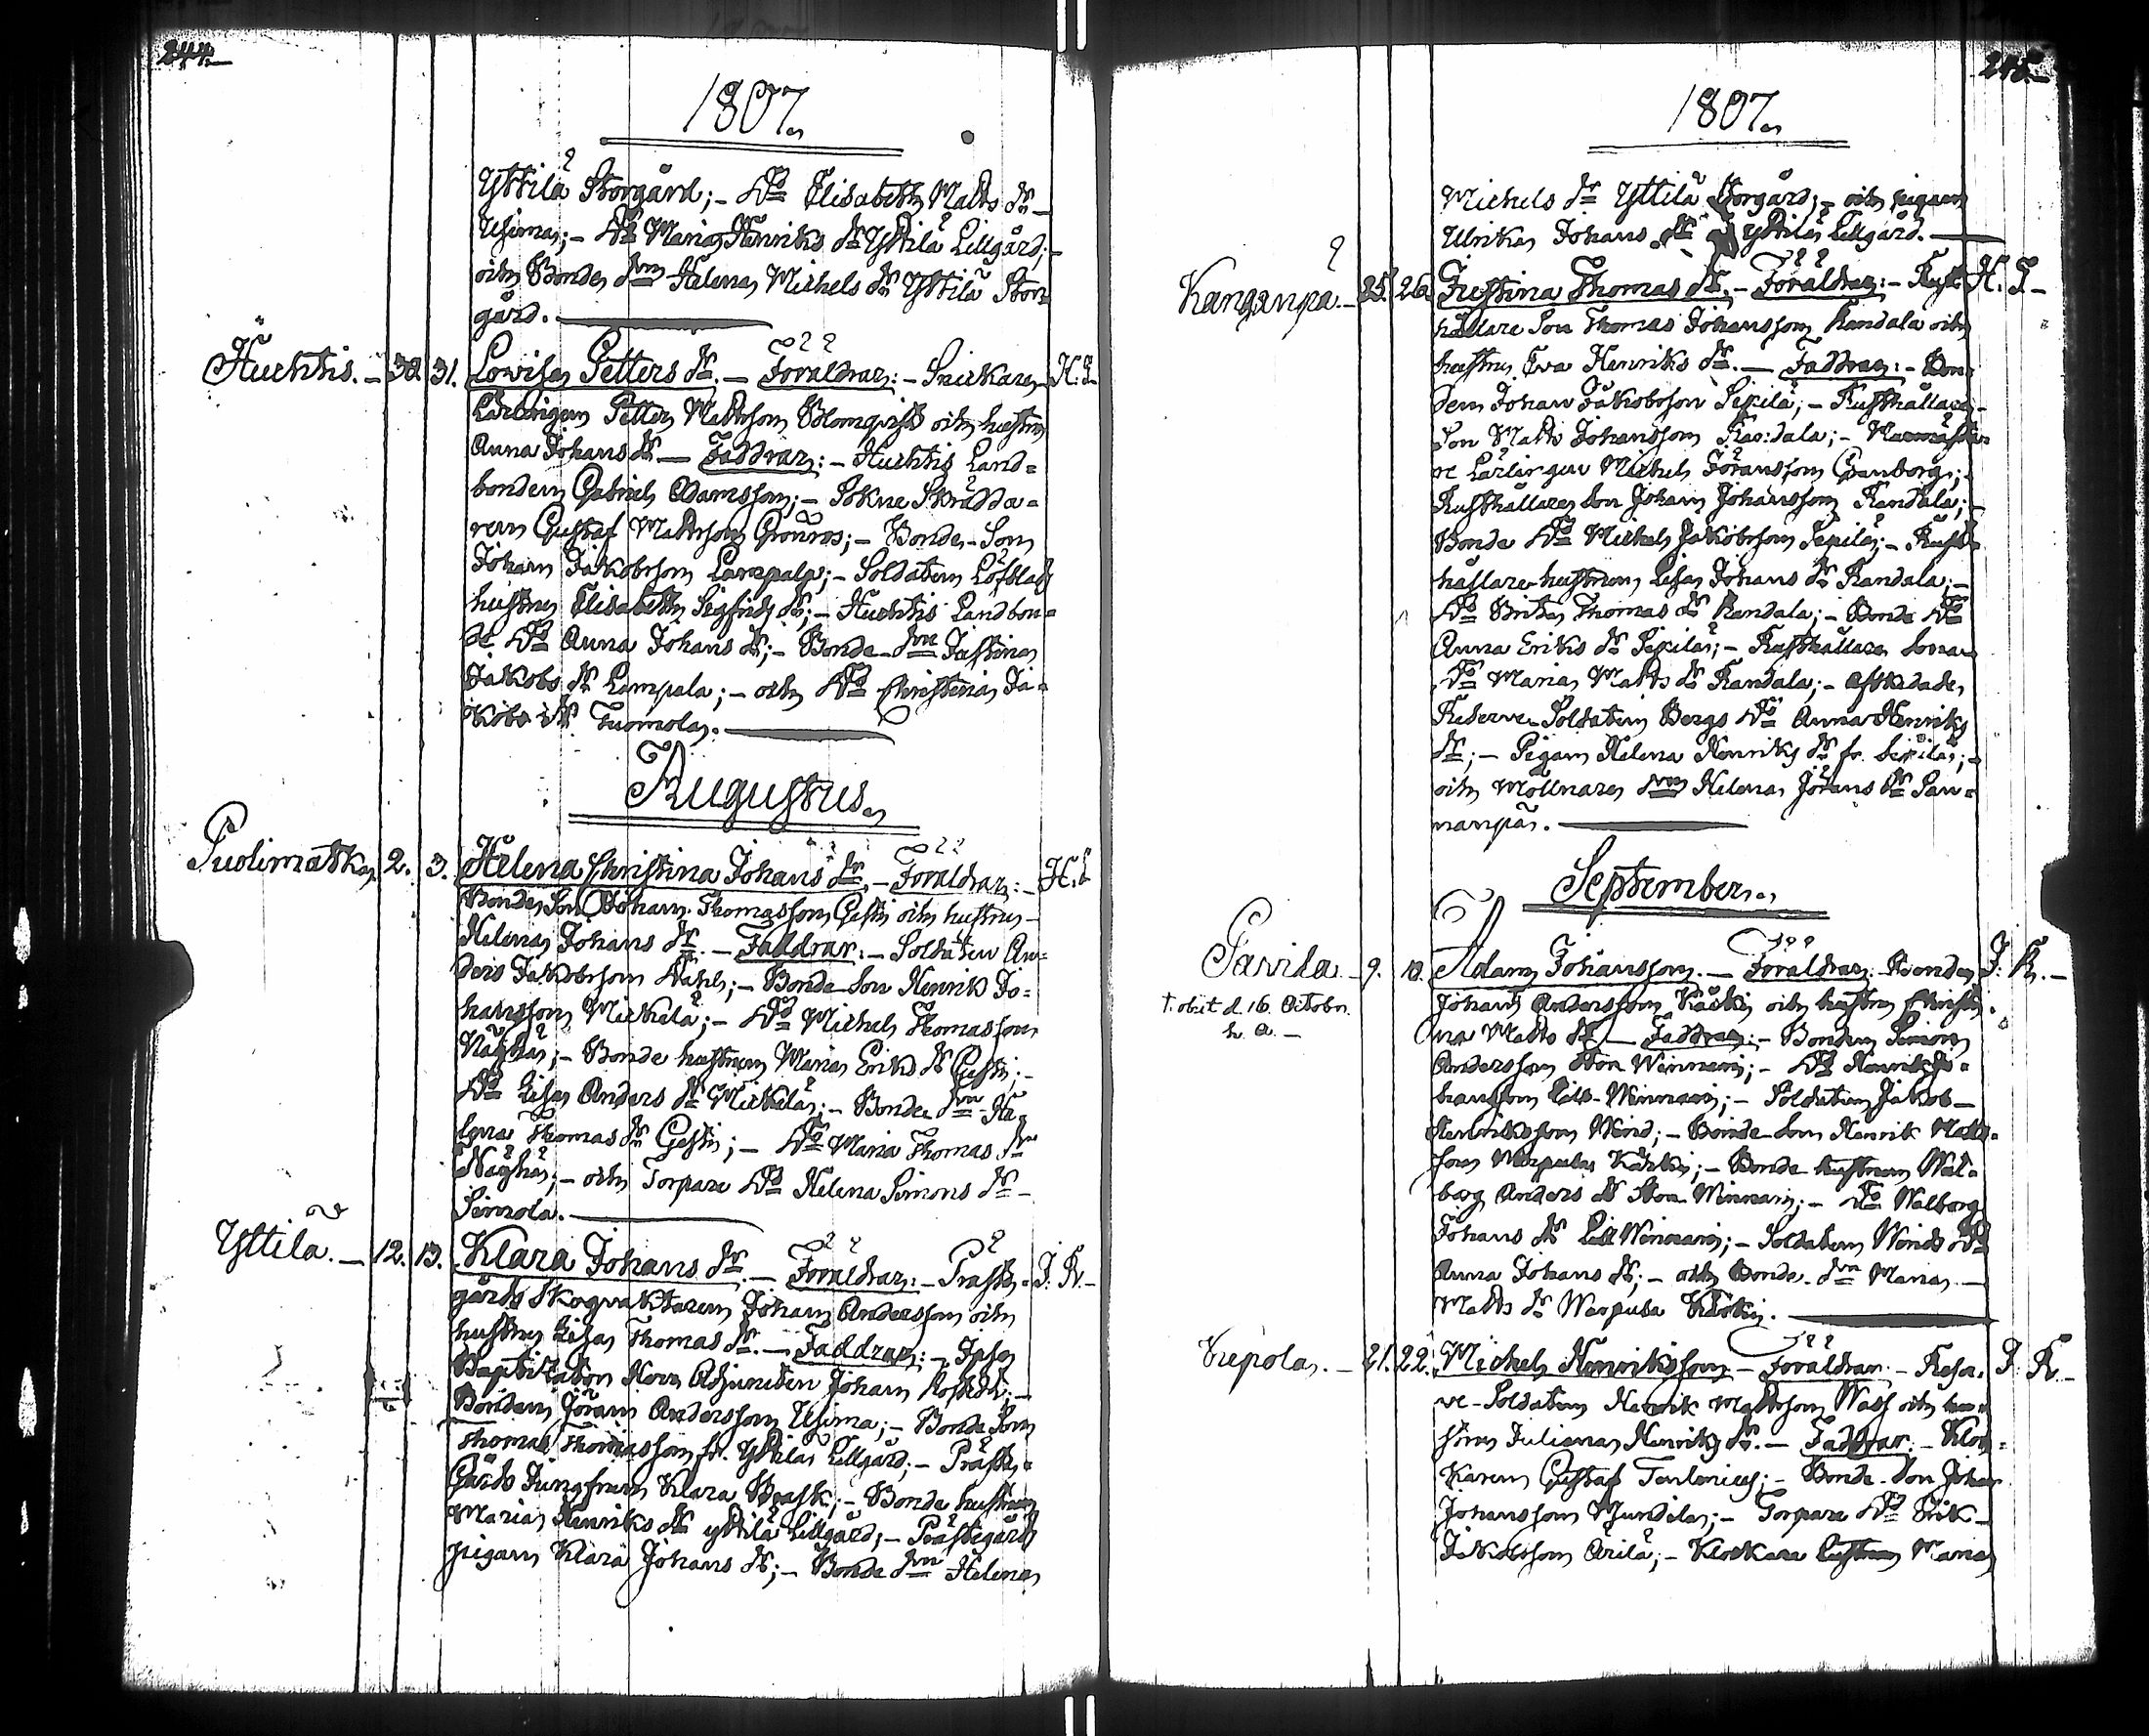 244.
1807.
Yttilä Storgård; – D:o Elisabeth Matts dr –
Ufima; – D:o Maria Henriks dr Yttilä Lillgård; –
och Bonde drn Helena Michels dr Yttilä Stor=
gård.
Huchtis. – 30. 31. Lovisa Petters dr. – Föräldrar: – Snickare H. L.
Lärlingen Petter Mattsson Blomqvist och hustru
Anna Johans dr. – Faddrar: – Huchtis Land=
bonden Gabriel Adamsson; – Sokne Skrädda=
ren Gustaf Mattsson Grönros; – Bonde-Son
Johan Jakobsson; – Soldaten Löfblads
hustru Elisabeth Sigfrids dr; – Huchtis Landbon=
de D:o Anna Johans dr; – Bonde-drn Justina
Jakobs dr Lempala; – och D:o Christina Ja=
kobs dr Tuomola.
Augustus.
Puolimatka 2. 3. Helena Christina Johans dr. – Föräldrar: – H. L.
Bonde Son Johan Thomasson och hustru
Helena Johans dr. – Faddrar: – Soldaten An=
ders Jakobsson Dahl; – Bonde Son Henrik Jo=
hansson Mickelä; – D:o Michel Thomasson
Näyhä; – Bonde hustrun Maria Eriks dr; –
D:o Lisa Anders dr Mickelä; – Bonde drn He=
lena Thomas dr; – D:o Maria Thomas dr
Näyhä; – och Torpare D:o Helena Simons dr –
Simola.
Yttilä. – 12. 13. Klara Johans dr. – Föräldrar: – Präst= J. R. –
gårds Skogvaktaren Johan Andersson och
hustru Lisa Thomas dr. – Faddrar: – Ipse
Baptisator Herr Adjuncten Johan; –
Bonden Jöran Andersson Ufima; – Bonde Son
Thomas Thomasson fr. Yttilä Lillgård; – Präste=
Gårds Jungfrun Klara Brask; – Bonde hustrun
Maria Henriks dr Yttilä Lillgård; – Prästegårds
pigan Klara Johans dr; – Bonde drn Helena
245.
1807.
Michels dr Yttilä Storgård; – och pigan
Ulrika Johans dr Yttilä Lillgård.
Kanganpä. – 25. 26. Justina Thomas dr. – Föräldrar: – Rust H. L. –
hållare Son Thomas Johansson Randala och
hustru Eva Henriks dr. – Faddrar: – Bon=
den Johan Jakobsson Sepilä; – Rusthållare
Son Matts Johansson Randala; –
re Lärlingen Michel Jöransson Granborg; –
Rusthållare Son Johan Johansson Randala; –
Bonde D:o Michel Jakobsson Sepilä; – Rust=
hållare hustrun Lisa Johans dr Randala; –
D:o Brita Thomas dr Randala; – Bonde D:o
Anna Eriks dr Sepilä; – Rusthållare Sona
D:o Maria Matts dr Randala; – Afskedade
Reserve-Soldaten Bergs D:o Anna Henriks
dr; – Pigan Helena Henriks dr fr. Sepilä; –
och Möllnare drn Helena Jörans dr San=
nanpä.
September.
Savila. – 9. 10. Adam Johansson. – Föräldrar: Bonden J. R. –
† obiit d. 16. Octobr.
h. a. –
Johan Andersson Kärki och hustru Christi=
na Matts dr – Faddrar: – Bonden Simon
Andersson Stor Winnari; – D:o Henrik Jo=
hansson Lill-Winnari; – Soldaten Jakob –
Henriksson Wind; – Bonde-Son Henrik Matts=
son Warpula Kärki; – Bonde hustrun Wal=
borg Anders dr Stor Winnari; – D:o Walborg
Johans dr Lill Winnari; – Soldaten Winds D:o
Anna Johans dr; – och Bonde-drn Maria –
Matts dr Warpula Kärki.
Kepola. – 21. 22. Michel Henriksson – Föräldrar: – Reser= J. R. –
ve-Soldaten Henrik Mattsson Wass och hu=
stru Juliana Henriks dr. – Faddrar: – Kloc=
karen Gustaf Tenlenius; – Bonde-Son Johan
Johansson Mundila; – Torpare D:o Erik –
Jakobsson Ärilä; – Klockare hustrun Maria